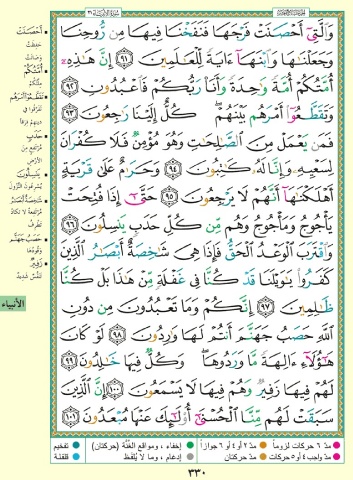 سُورَةُ الأَنبِيَاء ٢١
وَٱلَّتِىٓ أَحْصَنَتْ فَرْجَهَا فَنَفَخْنَا فِيهَا مِن رُّوحِنَا
وَجَعَلْنَٰهَا وَٱبْنَهَآ ءَايَةً لِّلْعَٰلَمِينَ ٩١ إِنَّ هَٰذِهِۦٓ
أُمَّتُكُمْ أُمَّةً وَٰحِدَةً وَأَنَا۠ رَبُّكُمْ فَٱعْبُدُونِ ٩٢
وَتَقَطَّعُوٓا۟ أَمْرَهُم بَيْنَهُمْ ۖ كُلٌّ إِلَيْنَا رَٰجِعُونَ ٩٣
فَمَن يَعْمَلْ مِنَ ٱلصَّٰلِحَٰتِ وَهُوَ مُؤْمِنٌ فَلَا كُفْرَانَ
لِسَعْيِهِۦ وَإِنَّا لَهُۥ كَٰتِبُونَ ٩٤ وَحَرَٰمٌ عَلَىٰ قَرْيَةٍ
أَهْلَكْنَٰهَآ أَنَّهُمْ لَا يَرْجِعُونَ ٩٥ حَتَّىٰٓ إِذَا فُتِحَتْ
يَأْجُوجُ وَمَأْجُوجُ وَهُم مِّن كُلِّ حَدَبٍ يَنسِلُونَ ٩٦
وَٱقْتَرَبَ ٱلْوَعْدُ ٱلْحَقُّ فَإِذَا هِىَ شَٰخِصَةٌ أَبْصَٰرُ ٱلَّذِينَ
كَفَرُوا۟ يَٰوَيْلَنَا قَدْ كُنَّا فِى غَفْلَةٍ مِّنْ هَٰذَا بَلْ كُنَّا
ظَٰلِمِينَ ٩٧ إِنَّكُمْ وَمَا تَعْبُدُونَ مِن دُونِ
ٱللَّهِ حَصَبُ جَهَنَّمَ أَنتُمْ لَهَا وَٰرِدُونَ ٩٨ لَوْ كَانَ
هَٰٓؤُلَآءِ ءَالِهَةً مَّا وَرَدُوهَا ۖ وَكُلٌّ فِيهَا خَٰلِدُونَ ٩٩
لَهُمْ فِيهَا زَفِيرٌ وَهُمْ فِيهَا لَا يَسْمَعُونَ ١٠٠ إِنَّ ٱلَّذِينَ
سَبَقَتْ لَهُم مِّنَّا ٱلْحُسْنَىٰٓ أُو۟لَٰٓئِكَ عَنْهَا مُبْعَدُونَ ١٠١
أَحْصَنَتْ
حفظت
وصانت
أُمَّتُكُمْ
ملتكم
تَقَطَّعُوا أَمْرَهُم
تفرقوا في
دينهم فرقا
حَدَبٍ
مرتفع من
الأرض
يَنسِلُونَ
يسرعون النزول
شَاخِصَةٌ أَبْصَارُ
مرتفعة لا تكاد
تطرف
حَصَبُ جَهَنَّمَ
وقودها
زَفِيرٌ
تنفس شديد
الأنبياء
مدّ ٦ حركات لزوماً مدّ ٢ أو ٤ أو ٦ جوازاً إخفاء، ومواقع الغُنَّة (حركتان) تفخيم
مدّ واجب ٤ أو ٥ حركات مدّ حركتان إدغام، وما لا يُلفَظ قلقلة
٣٣٠